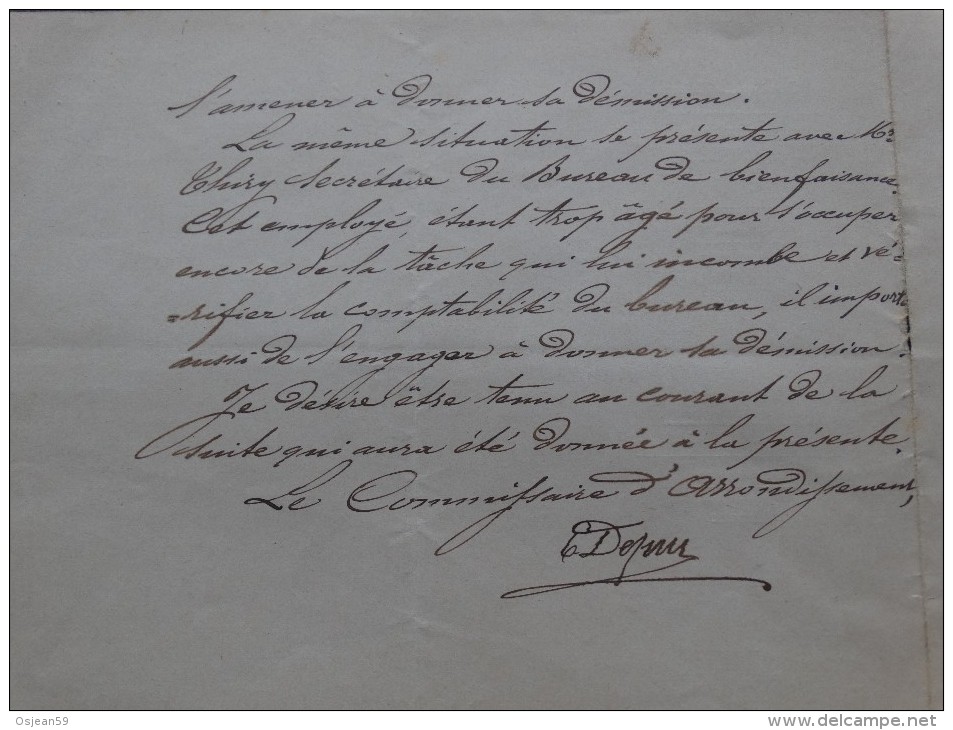 l'amener à donner sa démission.
La même situation se présente avec Mr
Thiry Secrétaire du Bureau de bienfaisance.
Cet employé, étant trop âgé pour s'occuper
encore de la tâche qui lui incombe et vé-
=rifier la comptabilité du bureau, il importe
aussi de l'engager à donner sa démission.
Je désire être tenu au courant de la
suite qui aura été donnée à la présente.
Le Commissaire d'Arrondissement,
Osjean59
www.delcampe.net